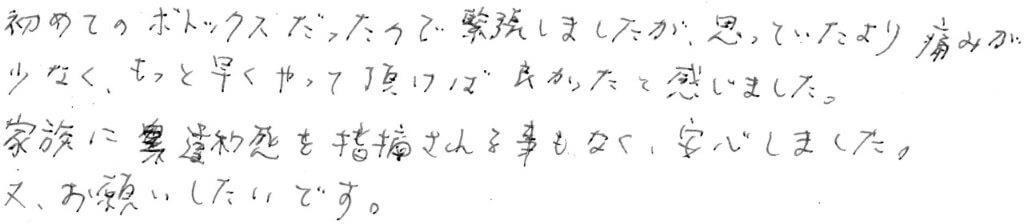 初めてのボトックスだったので緊張しましたが、思っていたより痛みが
少なく、もっと早くやって頂けば良かったと感じました。
家族に違和感を指摘される事もなく、安心しました。
又、お願いしたいです。